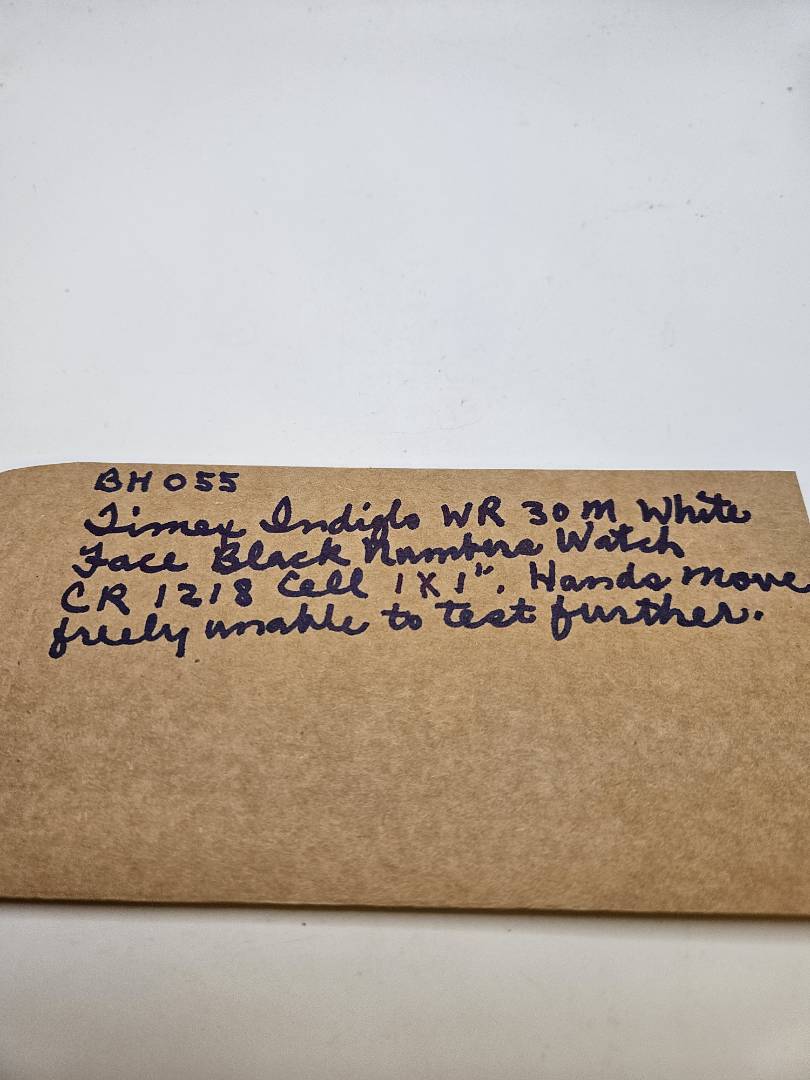 BH 055
Timex Indiglo WR 30 M White
Face Black Numbers Watch
CR 1218 Cell 1X1". Hands move
freely unable to test further.